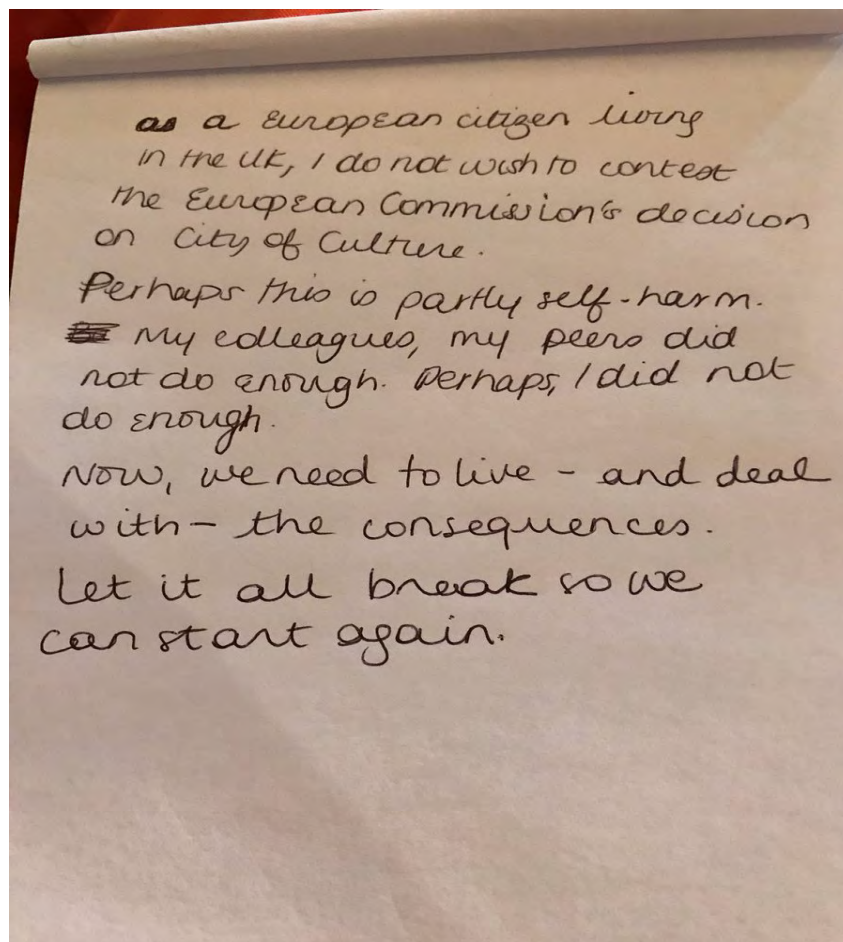 as a European citizen living
in the UK, I do not wish to contest
the European Commission's decision
on City of Culture.
Perhaps this is partly self-harm.
My colleagues, my peers did
not do enough. Perhaps, I did not
do enough.
Now, we need to live - and deal
with - the consequences.
Let it all break so we
can start again.